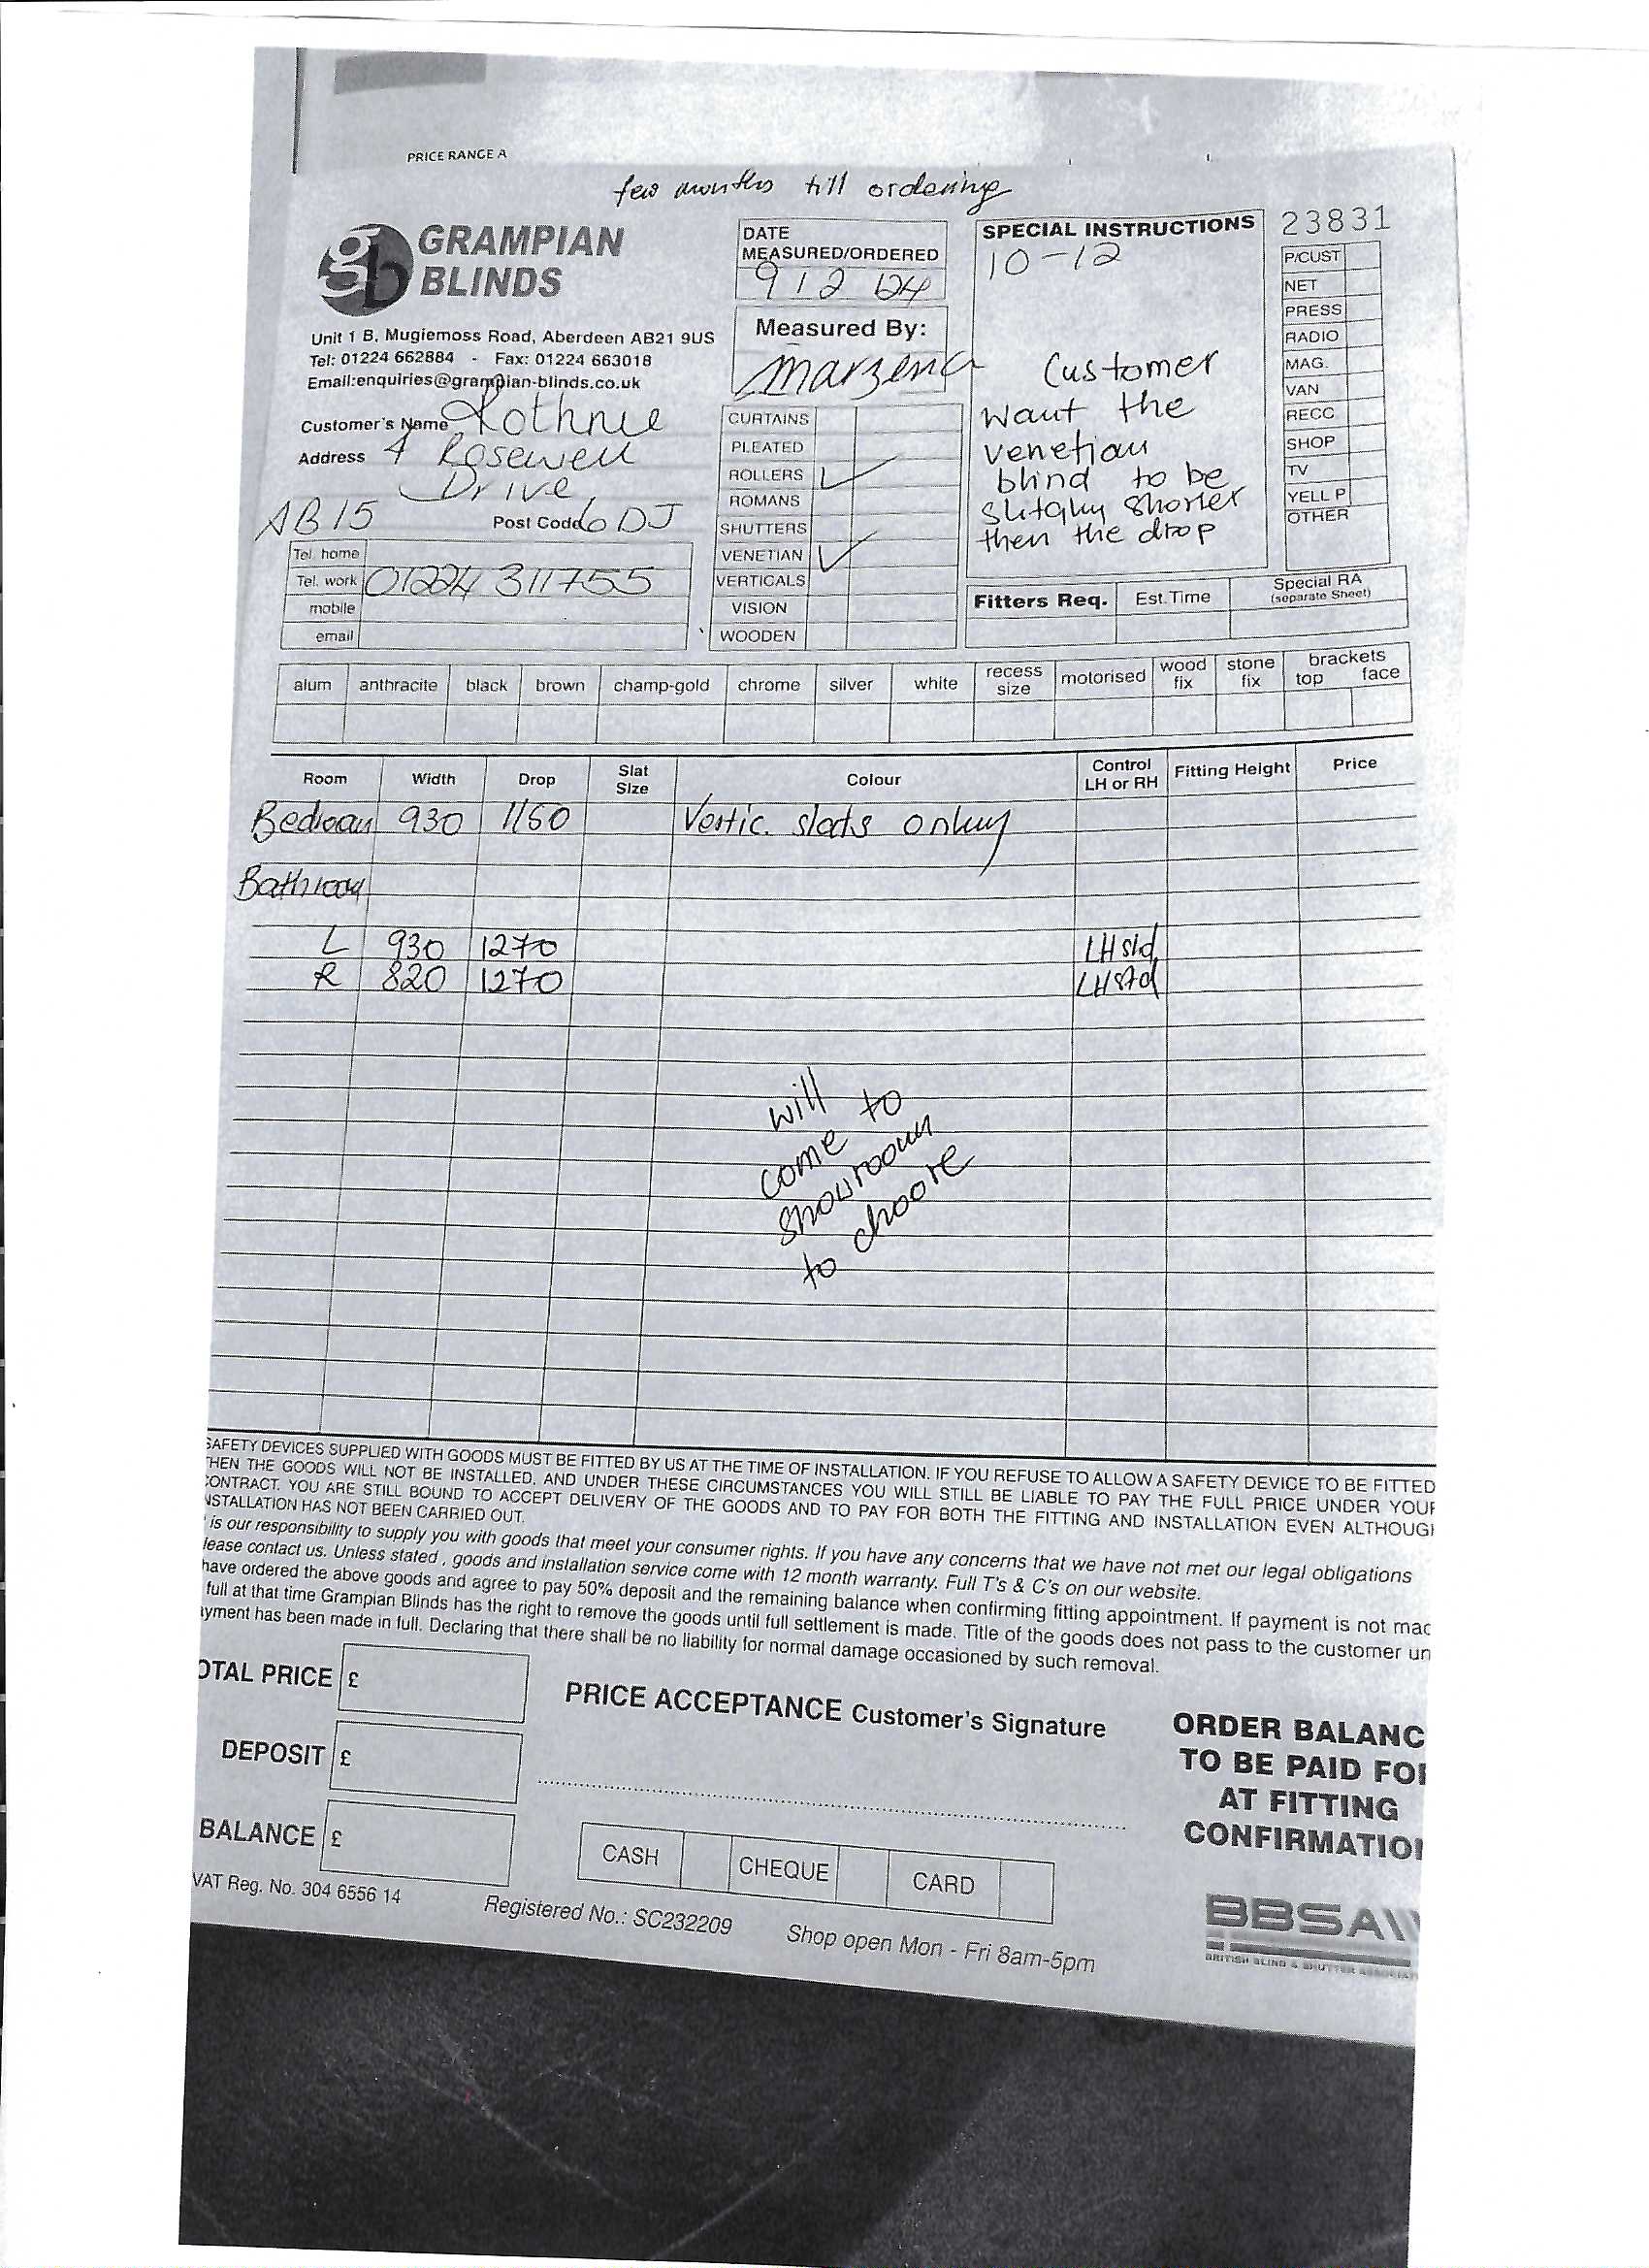 PRICE RANGE A
few months till ordering
GRAMPIAN
BLINDS
Unit 1 B, Mugiemoss Road, Aberdeen AB21 9US
Tel: 01224 662884 - Fax: 01224 663018
Email:enquiries@grampian-blinds.co.uk
DATE
MEASURED/ORDERED
9 12 24
Measured By:
Marzena
SPECIAL INSTRUCTIONS
10-12
Customer
want the
venetian
blind to be
slitghy shorter
then the drop
23831
P/CUST
NET
PRESS
RADIO
MAG.
VAN
RECC
SHOP
TV
YELL P
OTHER
Customer's Name Rothnie
Address 4 Rosewell
Drive
AB15 Post Code 6DJ
Tel. home
Tel. work 01224 311755
mobile
email
CURTAINS
PLEATED
ROLLERS ✓
ROMANS
SHUTTERS
VENETIAN ✓
VERTICALS
VISION
WOODEN
Fitters Req. Est. Time Special RA
(separate Sheet)
alum anthracite black brown champ-gold chrome silver white recess size motorised wood fix stone fix brackets top face
Room Width Drop Slat Size Colour Control LH or RH Fitting Height Price
Bedroom 930 1150 Vertic. slats only
Bathroom
L 930 1270 LH std
R 820 1270 LH std
will
come to
showroom
to choore
SAFETY DEVICES SUPPLIED WITH GOODS MUST BE FITTED BY US AT THE TIME OF INSTALLATION. IF YOU REFUSE TO ALLOW A SAFETY DEVICE TO BE FITTED
THEN THE GOODS WILL NOT BE INSTALLED, AND UNDER THESE CIRCUMSTANCES YOU WILL STILL BE LIABLE TO PAY THE FULL PRICE UNDER YOUR
CONTRACT. YOU ARE STILL BOUND TO ACCEPT DELIVERY OF THE GOODS AND TO PAY FOR BOTH THE FITTING AND INSTALLATION EVEN ALTHOUGH
NSTALLATION HAS NOT BEEN CARRIED OUT.
is our responsibility to supply you with goods that meet your consumer rights. If you have any concerns that we have not met our legal obligations
lease contact us. Unless stated , goods and installation service come with 12 month warranty. Full T's & C's on our website.
have ordered the above goods and agree to pay 50% deposit and the remaining balance when confirming fitting appointment. If payment is not mac
full at that time Grampian Blinds has the right to remove the goods until full settlement is made. Title of the goods does not pass to the customer un
ayment has been made in full. Declaring that there shall be no liability for normal damage occasioned by such removal.
OTAL PRICE £
DEPOSIT £
BALANCE £
PRICE ACCEPTANCE Customer's Signature
CASH CHEQUE CARD
ORDER BALANC
TO BE PAID FOR
AT FITTING
CONFIRMATION
VAT Reg. No. 304 6556 14
Registered No.: SC232209
Shop open Mon - Fri 8am-5pm
BBSA
BRITISH BLIND & SHUTTER ASSOCIAT